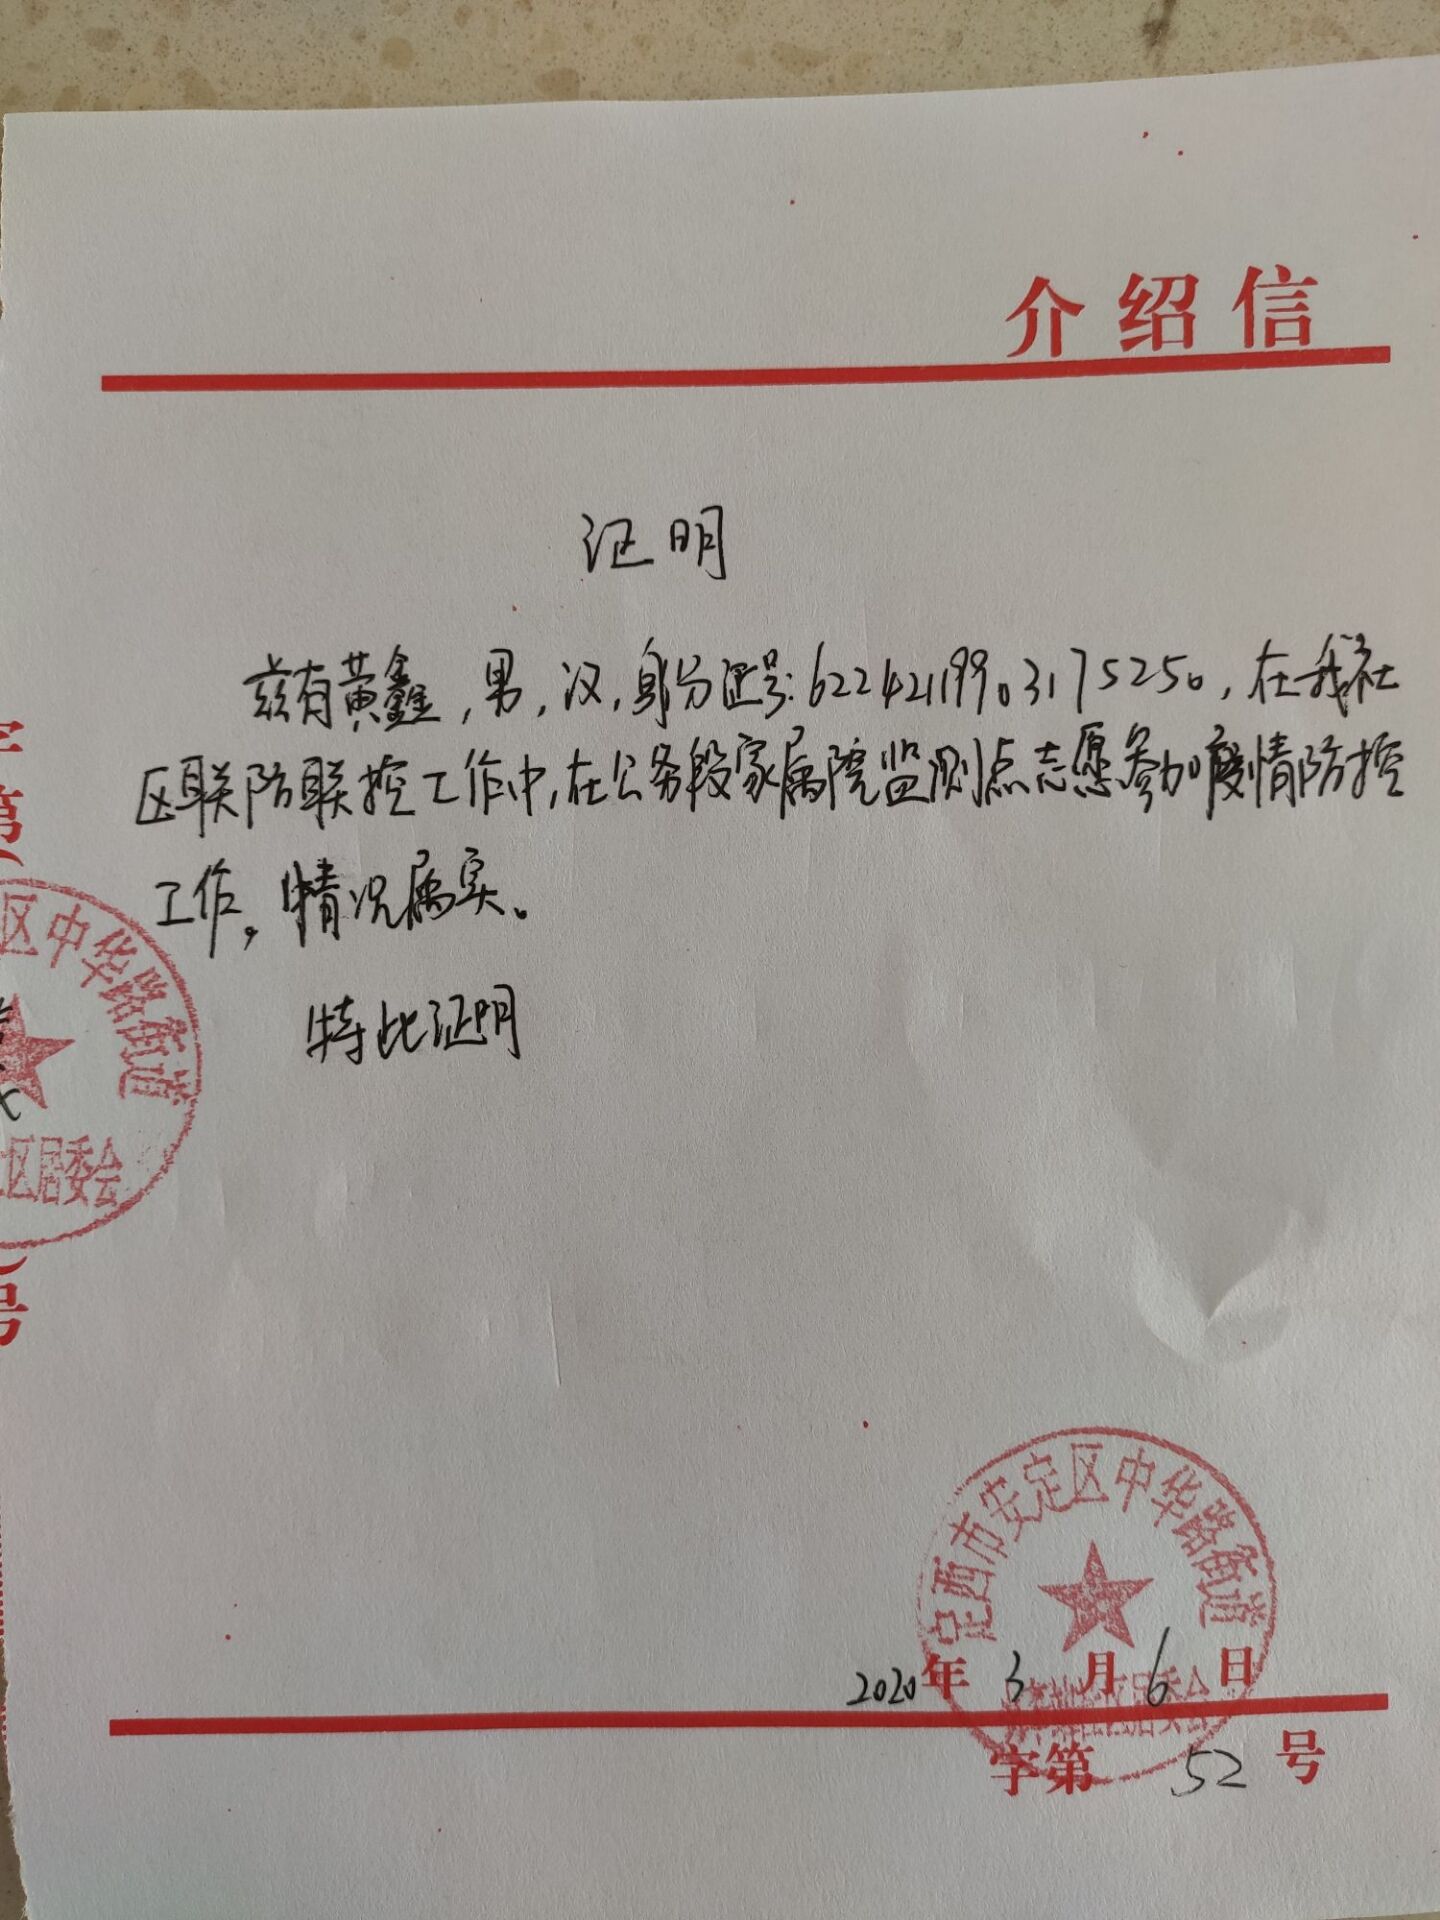 介绍信
证明
兹有黄鑫,男,汉,身份证号:62242119903175250,在我社
区联防联控工作中,在公务段家属院监测点志愿参加疫情防控
工作,情况属实。
特此证明
字第
号
区中华路街道
区居委会
定西市安定区中华路街道
社区居委会
2020年3月6日
字第52号